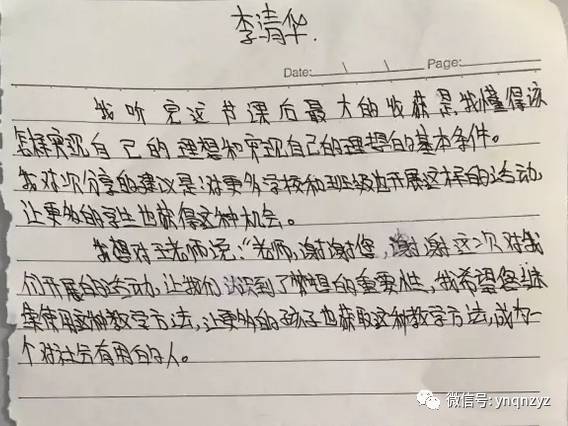 李清华
Date: \ \ Page:
我听完这节课后最大的收获是我懂得该
怎样实现自己的理想和实现自己的理想的基本条件。
我对次分享的建议是:对更多学校和班级也开展这样的活动,
让更多的学生也获得这种机会。
我想对王老师说:“老师,谢谢您,谢谢这次对我
们开展的活动,让我们认识到了梦想的重要性,我希望您继
续使用这种教学方法,让更多的孩子也获取这种教学方法,成为一
个对社会有用的人。
微信号: ynqnzyz